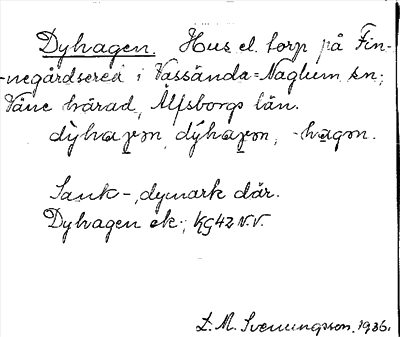 Dyhagen. Hus el. torp på Fin-
negårdsered i Vassända=Naglum sn;
Väne härad, Älfsborgs län.
dỳhaɡ̱ən, dýhaɡ̱ən, -hagən.
Sank-, dymark där.
Dyhagen ek., KG42 N.V.
L. M. Svenungsson. 1936.